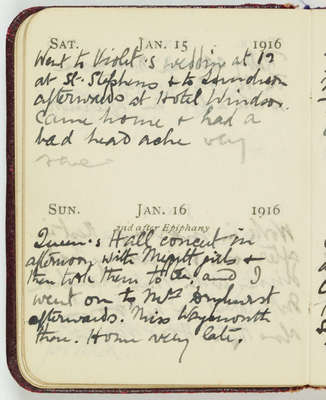 SAT. JAN. 15 1916
Went to Violet's wedding at 12
at St. Stephens & to Luncheon
afterwards at Hotel Windsor.
Came home & had a
bad head ache very
SUN. JAN. 16 1916
2nd after Epiphany
Queen's Hall concert in
afternoon with girls &
then took them to tea and I
went on to Mrs
afterwards. Miss Waymouth
there. Home very late.